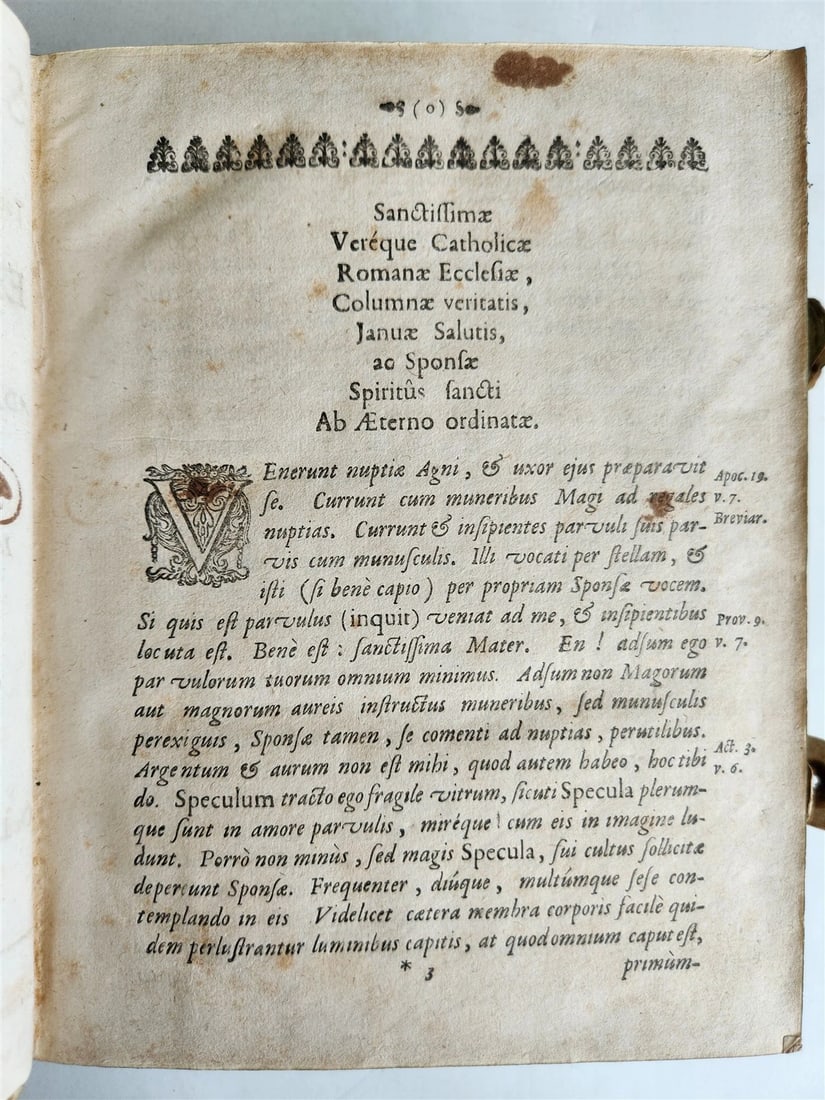 (0)
Sanctiſſimæ
Veréque Catholicæ
Romanæ Eccleſiæ,
Columnæ veritatis,
Januæ Salutis,
ac Sponſæ
Spiritûs ſancti
Ab Æterno ordinatæ.
VEnerunt nuptiæ Agni, & uxor ejus præparavit
Apoc. 19.
ſe. Currunt cum muneribus Magi ad regales
v. 7.
Breviar.
nuptias. Currunt & inſipientes parvuli ſuis par-
vis cum munuſculis. Illi vocati per ſtellam, &
iſti (ſi benè capio) per propriam Sponſæ vocem.
Si quis eſt parvulus (inquit) veniat ad me, & inſipientibus
Prov. 9.
locuta eſt. Benè eſt: ſanctiſſima Mater. En! adſum ego
v. 7.
parvulorum tuorum omnium minimus. Adſum non Magorum
aut magnorum aureis inſtructus muneribus, ſed munuſculis
perexiguis, Sponſæ tamen, ſe comenti ad nuptias, perutilibus.
Act. 3.
Argentum & aurum non eſt mihi, quod autem habeo, hoc tibi
v. 6.
do. Speculum tracto ego fragile vitrum, ſicuti Specula plerum-
que ſunt in amore parvulis, miréque cum eis in imagine lu-
dunt. Porrò non minùs, ſed magis Specula, ſui cultus ſollicitæ
depereunt Sponſæ. Frequenter, diúque, multúmque ſeſe con-
templando in eis Videlicet cætera membra corporis facilè qui-
dem perluſtrantur luminibus capitis, at quod omnium caput eſt,
* 3
primùm-